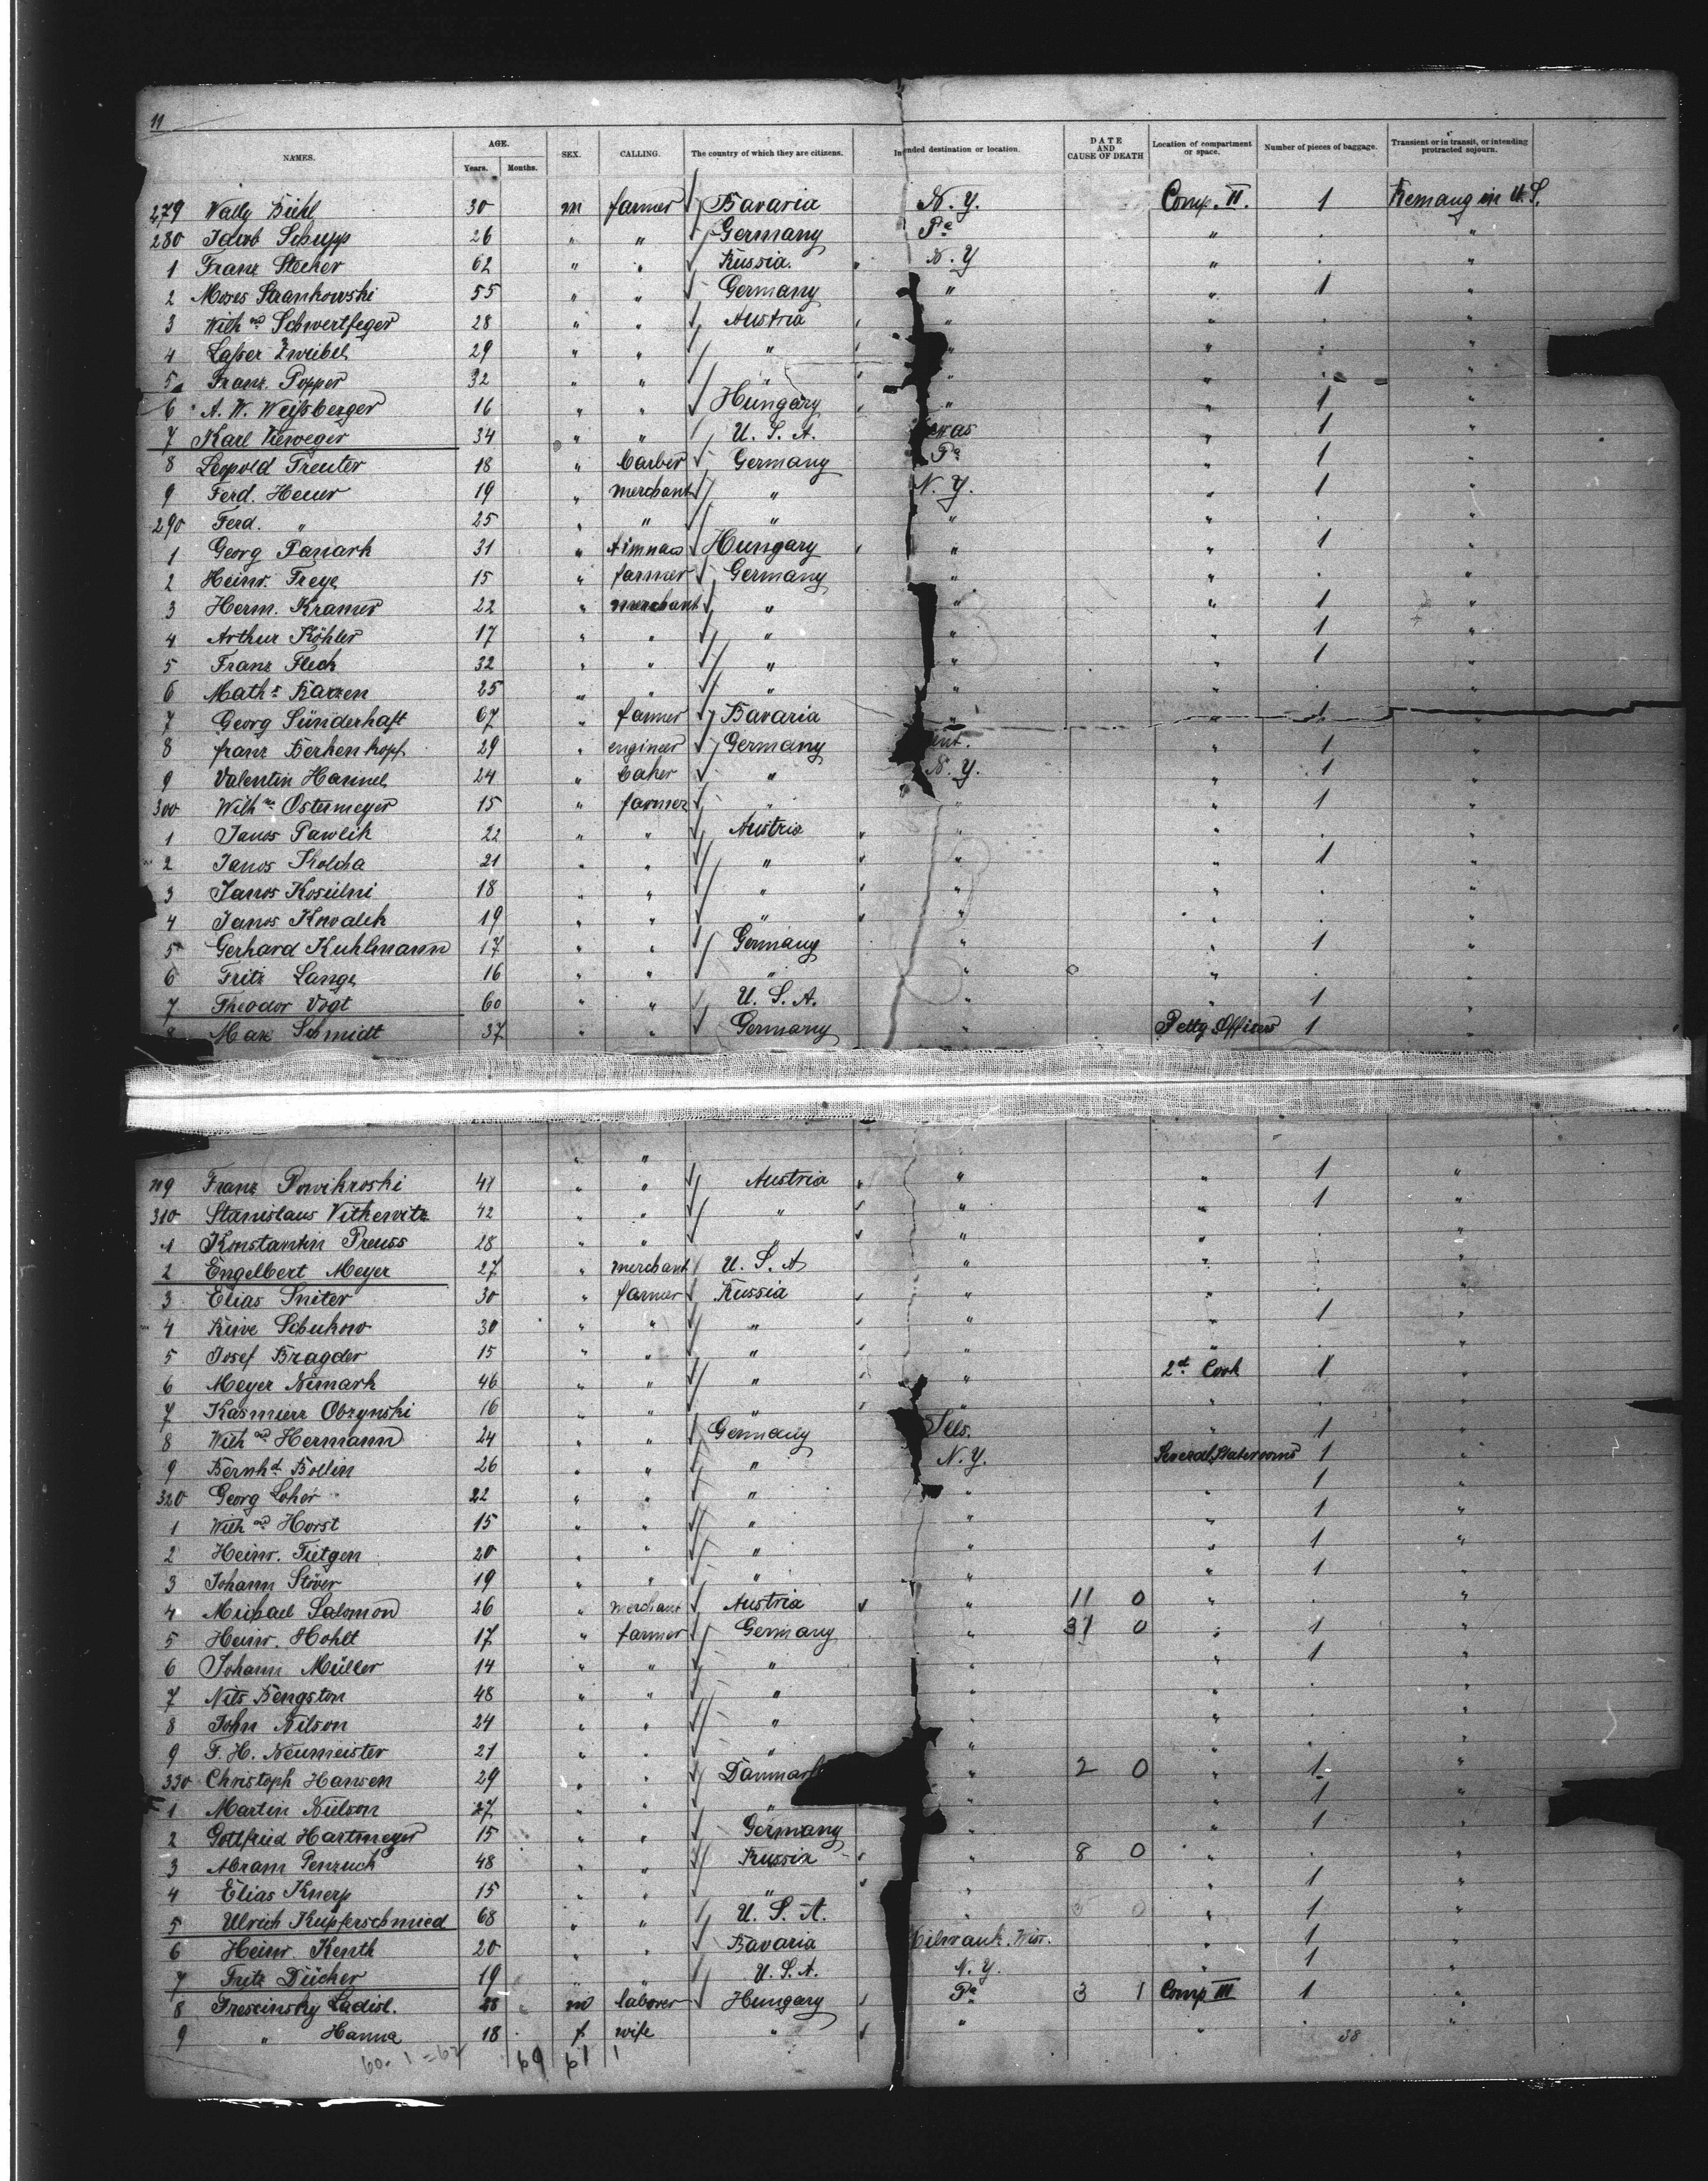 11
NAMES. AGE. Years. Months. SEX. CALLING. The country of which they are citizens. Intended destination or location. DATE AND CAUSE OF DEATH Location of compartment or space. Number of pieces of baggage. Transient or in transit, or intending protracted sojourn.
279 Wally Biehl 30 m farmer Bavaria N. Y. Comp. II. 1 in U. S.
280 Jacob Schupp 26 " " Germany Pa " . "
1 Franz Stecher 62 " " Russia. N. Y " . "
2 Moses Strankowski 55 " " Germany " " 1 "
3 Wilhm Schwertfeger 28 " " Austria " " . "
4 Lasser Zweibel 29 " " " " " . "
5 Franz Popper 32 " " " " " . "
6 A. W. Weissberger 16 " " Hungary " " 1 "
7 Karl 34 " " U. S. A. " 1 "
8 Leopold Treuter 18 " barber Germany Pa " 1 "
9 Ferd. Heuer 19 " merchant " N. Y. " 1 "
290 Ferd. " 25 " " " " " . "
1 Georg Panark 31 " Hungary " " 1 "
2 Heinr. Freye 15 " farmer Germany " " . "
3 Herm. Kramer 22 " merchant " " " 1 "
4 Arthur Köhler 17 " " " " " 1 "
5 Franz Fleck 32 " " " " " 1 "
6 Maths Barzen 25 " " " " " . "
7 Georg Sünderhaft 67 " farmer Bavaria " " 1 "
8 Franz Berkenkopf 29 " engineer Germany " 1 "
9 Valentin Hannel 24 " baker " N. Y. " 1 "
300 Wilhm Ostermeyer 15 " farmer " " " 1 "
1 Janos Pawlik 22 " " Austria " " . "
2 Janos Kolcha 21 " " " " " 1 "
3 Janos Koscielni 18 " " " " " . "
4 Janos Kowalek 19 " " " " " . "
5 Gerhard Kuhlmann 17 " " Germany " " 1 "
6 Fritz Lange 16 " " " " " . "
7 Theodor Vogt 60 " " U. S. A. " " 1 "
8 Max Schmidt 37 " " Germany " Petty Officers 1 "
" "
309 Franz Powikroski 41 " " Austria " " 1 "
310 Stanislaus Vitkewitz 42 " " " " " 1 "
1 Konstantin Preuss 28 " " " " " . "
2 Engelbert Meyer 27 " merchant U. S. A " " . "
3 Elias Sniter 30 " farmer Russia " " . "
4 Schukow 30 " " " " " 1 "
5 Josef Bragder 15 " " " " " . "
6 Meyer Nimark 46 " " " " 2d Cook 1 "
7 Kasmierz Obzynski 16 " " " " " . "
8 Wilhm Hermann 24 " " Germany " 1 "
9 Bernhd Bollin 26 " " " N. Y. Several Staterooms 1 "
320 Georg Loher 22 " " " " " 1 "
1 Wilhm Horst 15 " " " " " 1 "
2 Heinr. Tietgen 20 " " " " " 1 "
3 Johann Stöver 19 " " " " " 1 "
4 Michael Salomon 26 " merchant Austria " 11 0 " . "
5 Heinr. Hohlt 17 " farmer Germany " 31 0 " 1 "
6 Johann Müller 14 " " " " " 1 "
7 Nils Bengston 48 " " " " " . "
8 John Nilson 24 " " " " " . "
9 F. H. Neumeister 21 " " " " " . "
330 Christoph Hansen 29 " " Danmark " 2 0 " 1 "
1 Martin Nielson 27 " " " " " 1 "
2 Gottfried Hartmeyer 15 " " Germany " " 1 "
3 Abram Penzuch 48 " " Russia " 8 0 " . "
4 Elias Knerp 15 " " " " " 1 "
5 Ulrich Kupferschmied 68 " " U. S. A. " 0 " 1 "
6 Heinr. Kenth 20 " " Bavaria Milwauk. Wis. " 1 "
7 Fritz Dücher 19 " " U. S. A. N. Y. " 1 "
8 Trescinsky Ladisl. 28 m laborer Hungary Pa 3 1 Comp III 1 "
9 " Hanna 18 f wife " " " . "
60. 1 = 62 69 61 1 38